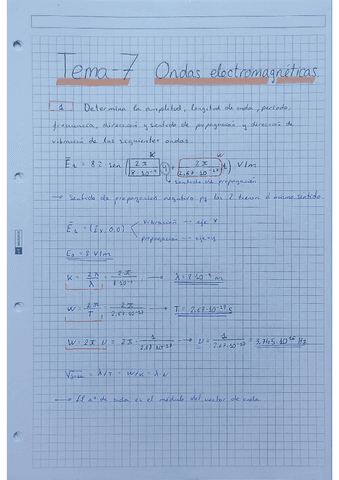 Tema-7 Ondas electromagnéticas.
1 Determina la amplitud, longitud de onda, periodo,
frecuencia, dirección y sentido de propagación y dirección de
vibración de las siguientes ondas.
K W
E₁ = 8 î sen ( 2π / 8·10⁻⁹ y + 2π / 2,67·10⁻¹⁷ t ) V/m
sentido de propagación
→ Sentido de propagación negativo pq los 2 tienen el mismo sentido.
E₁ = (Eₓ,0,0) vibración -- eje X
propagación -- eje y
E₀ = 8 V/m
K = 2π/λ = 2π/8·10⁻⁹ → λ = 8·10⁻⁹ m
W = 2π/T = 2π/2,67·10⁻¹⁷ → T = 2,67·10⁻¹⁷ s
W = 2π ν = 2π · 1/2,67·10⁻¹⁷ → ν = 1/2,67·10⁻¹⁷ = 3,745·10¹⁶ Hz
= λ/T = W/K = λ ν
→ El nº de onda es el módulo del vector de onda